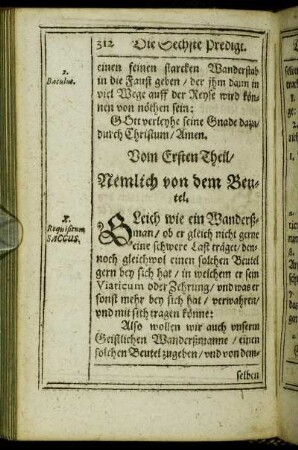 312 Die Sechste Predigt.
2.
Baculus.
einen feinen starcken Wanderstab
in die Faust geben / der jhm dann in
viel Wege auff der Reyse wird kön-
nen von nöthen sein:
GOtt verleyhe seine Gnade dazu /
durch Christum / Amen.
Vom Ersten Theil /
Nemlich von dem Beu-
tel.
I.
Requisitum
SACCUS.
GLeich wie ein Wanderß-
man / ob er gleich nicht gerne
eine schwere Last träget / den-
noch gleichwol einen solchen Beutel
gern bey sich hat / in welchem er sein
Viaticum oder Zehrung / und was er
sonst mehr bey sich hat / verwahren /
und mit sich tragen könne:
Also wollen wir auch unserm
Geistlichen Wanderßmanne / einen
solchen Beutel zugeben / und von dem-
selben